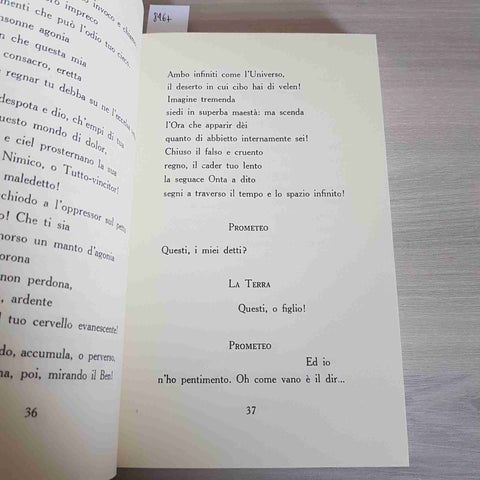 impreco
invoco e chiamo
menti che può l'odio tuo cieco,
insonne agonia
n che questa mia
consacro, eretta
regnar tu debba su ne l'eccelsa
despota e dio, ch'empi di tua
uesto mondo di dolor,
e ciel prosternano la sua
Nimico, o Tutto-vincitor!
maledetto!
chiodo a l'oppressor sul petto
o! Che ti sia
morso un manto d'agonia
orona
non perdona,
, ardente
l tuo cervello evanescente!
do, accumula, o perverso,
na, poi, mirando il Ben!
36
8967
Ambo infiniti come l'Universo,
il deserto in cui cibo hai di velen!
Imagine tremenda
siedi in superba maestà: ma scenda
l'Ora che apparir dèi
quanto di abbietto internamente sei!
Chiuso il falso e cruento
regno, il cader tuo lento
la seguace Onta a dito
segni a traverso il tempo e lo spazio infinito!
Prometeo
Questi, i miei detti?
La Terra
Questi, o figlio!
Prometeo
Ed io
n'ho pentimento. Oh come vano è il dir...
37